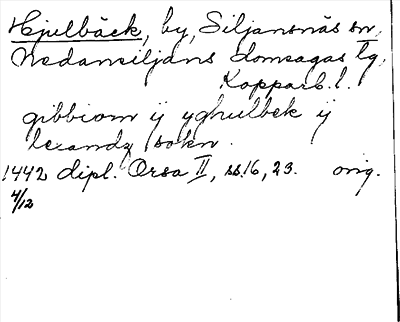 Hjulbäck, by, Siljansnäs sn,
Nedansiljans domsagas tg,
Kopparb. l.
gibbiom ij yghulbek ij
lexandz sokn.
1442 dipl. Orsa II, ss. 16, 23. orig.
4/12